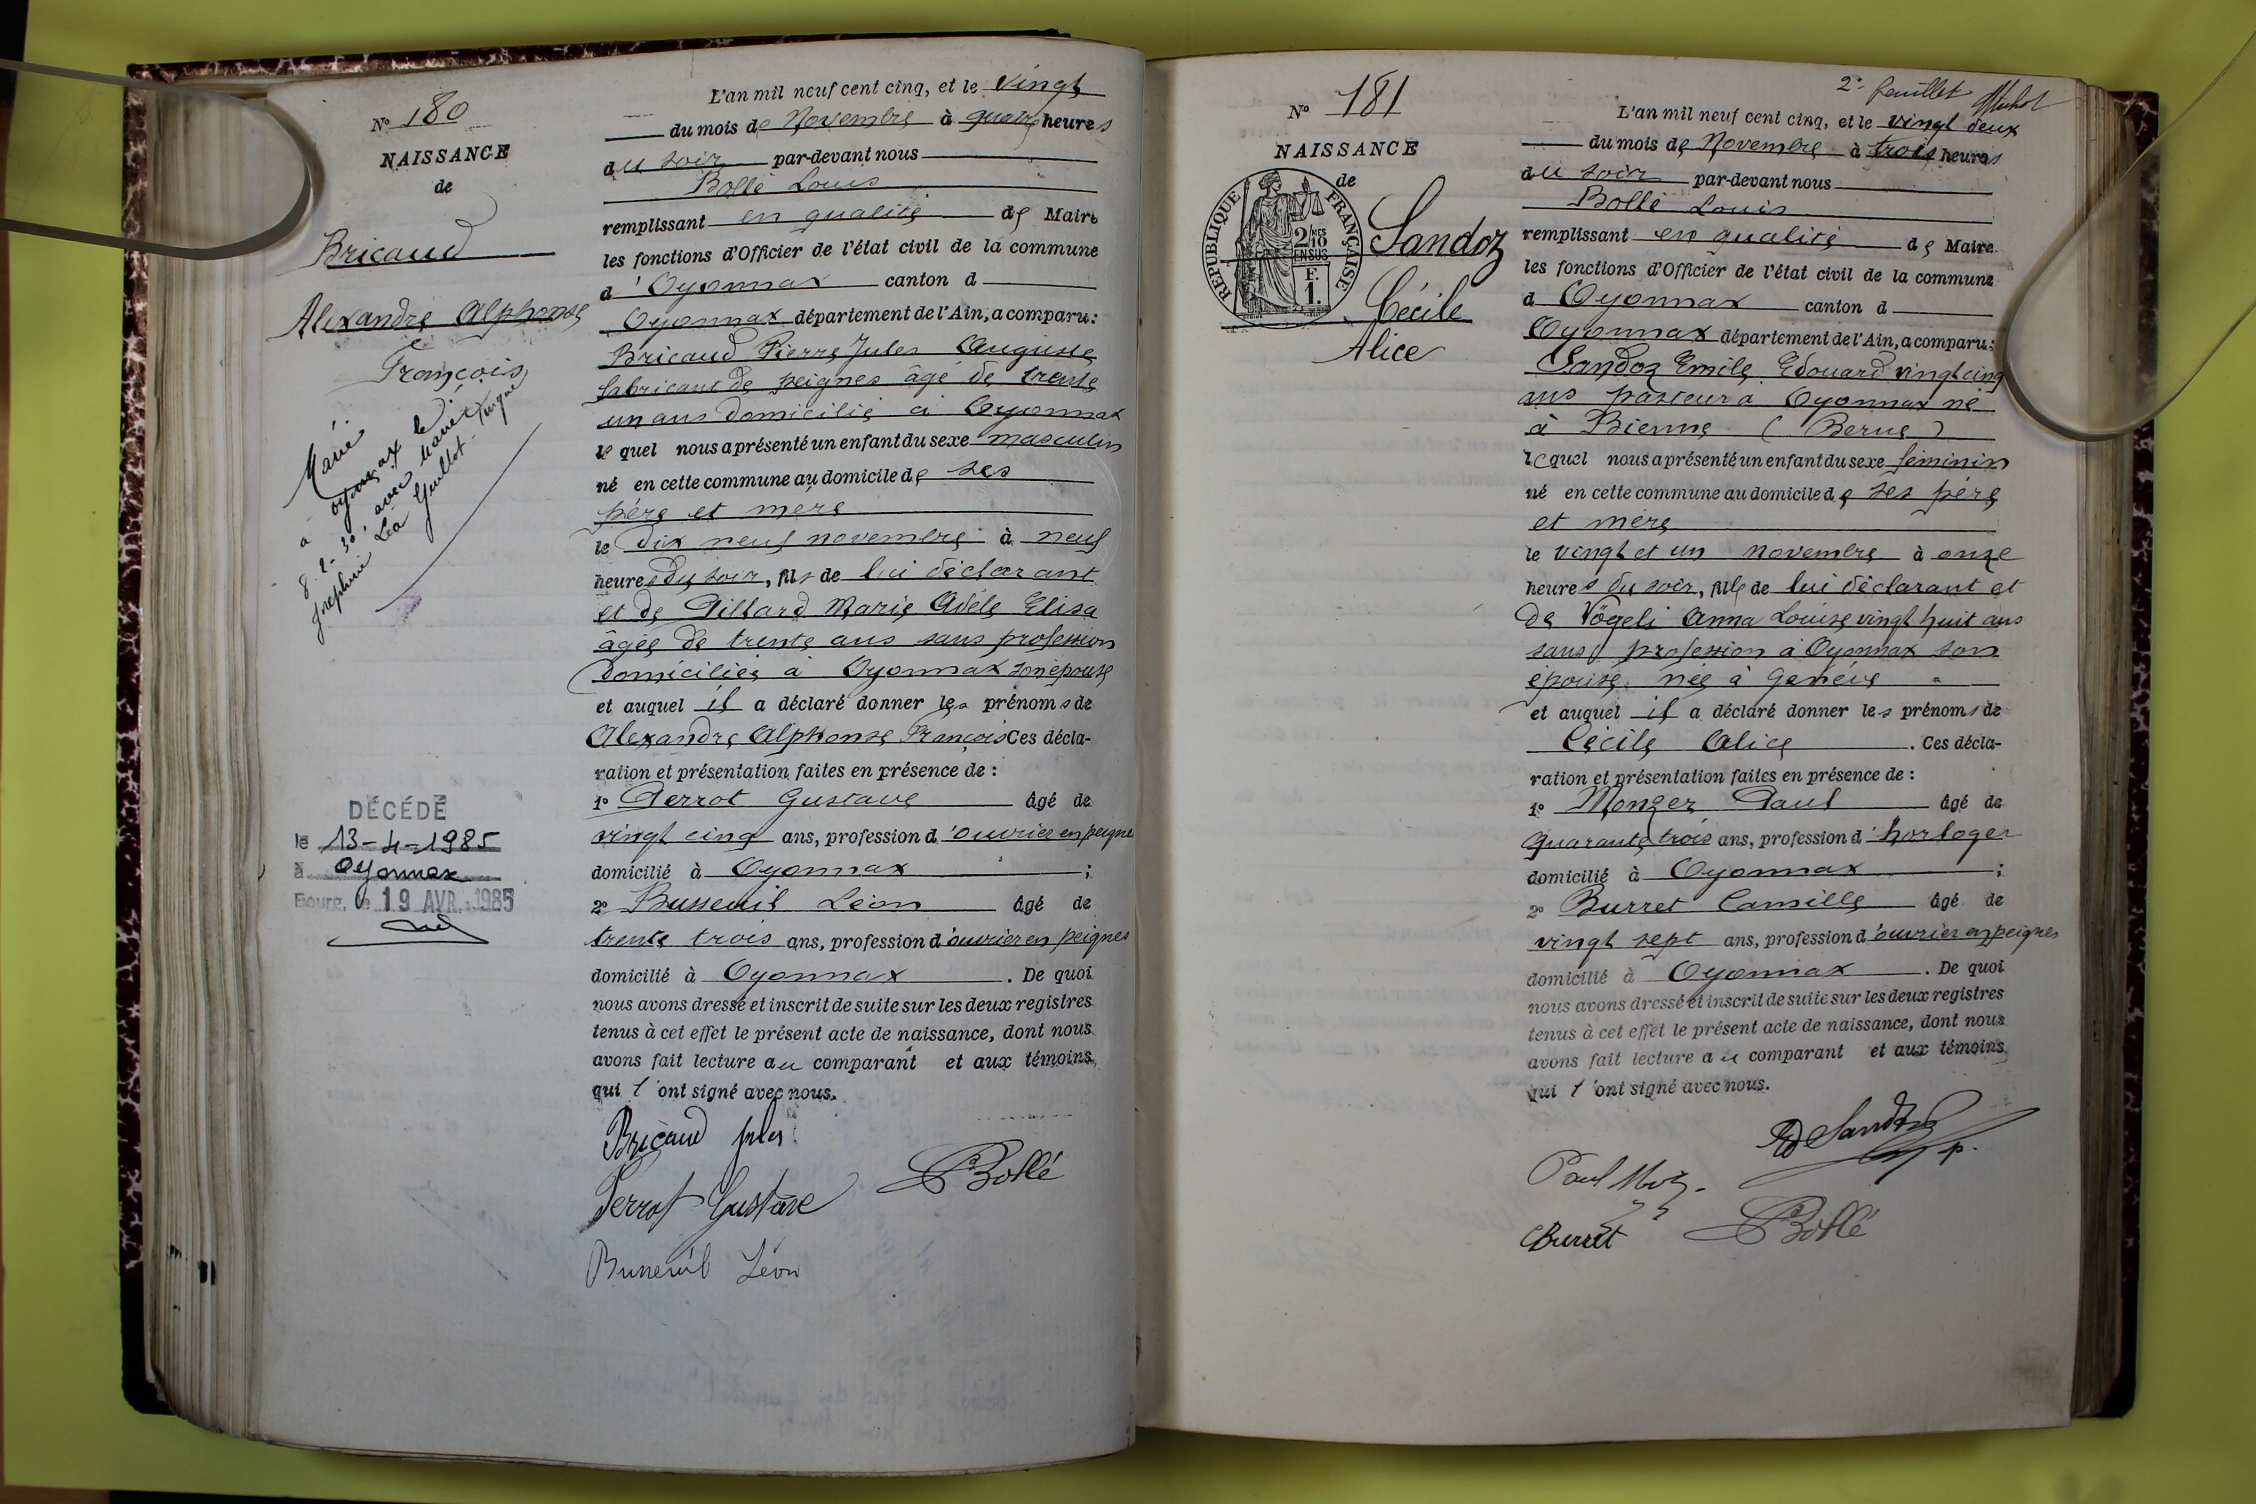 N° 180
NAISSANCE
de
Bricaud
Alexandre Alphonse
François
Marié
à Oyonnax le
8-2-30 avec Marie
Joséphine Léa Guillot-
DÉCÉDÉ
le 13-4-1985
à Oyonnax
Bourg, le 19 AVR. 1985
L'an mil neuf cent cinq, et le vingt
du mois de Novembre à quatre heures
du soir par-devant nous
Bollé Louis
remplissant en qualité de Maire
les fonctions d'Officier de l'état civil de la commune
d'Oyonnax canton d
Oyonnax département de l'Ain, a comparu:
Bricaud Pierre Jules Auguste
fabricant de peignes âgé de trente
un ans domicilié à Oyonnax
lequel nous a présenté un enfant du sexe masculin
né en cette commune au domicile de ses
père et mère
le dix neuf novembre à neuf
heures du soir, fils de lui déclarant
et de Dillard Marie Adèle Elisa
âgée de trente ans sans profession
domiciliée à Oyonnax son épouse
et auquel il a déclaré donner les prénoms de
Alexandre Alphonse François Ces décla-
ration et présentation faites en présence de :
1° Perrot Gustave âgé de
vingt cinq ans, profession d'ouvrier en peignes
domicilié à Oyonnax ;
2° Busseuil Léon âgé de
trente trois ans, profession d'ouvrier en peignes
domicilié à Oyonnax . De quoi
nous avons dressé et inscrit de suite sur les deux registres
tenus à cet effet le présent acte de naissance, dont nous
avons fait lecture au comparant et aux témoins,
qui l'ont signé avec nous.
Bricaud Jules
Bollé
Perrot Gustave
Busseuil Léon
2e feuillet
N° 181
NAISSANCE
de
RÉPUBLIQUE FRANÇAISE
2/10 MES
EN SUS
F.
1.
Sandoz
Cécile
Alice
L'an mil neuf cent cinq, et le vingt deux
du mois de Novembre à trois heures
du soir par-devant nous
Bollé Louis
remplissant en qualité de Maire
les fonctions d'Officier de l'état civil de la commune
d Oyonnax canton d
Oyonnax département de l'Ain, a comparu:
Sandoz Emile Edouard vingt cinq
ans pasteur à Oyonnax né
à Bienne (Berne)
lequel nous a présenté un enfant du sexe féminin
né en cette commune au domicile de ses père
et mère
le vingt et un novembre à onze
heures du soir, fille de lui déclarant et
de Vögeli Anna Louise vingt huit ans
sans profession à Oyonnax son
épouse née à Genève
et auquel il a déclaré donner les prénoms de
Cécile Alice . Ces décla-
ration et présentation faites en présence de :
1° Monzer Paul âgé de
quarante trois ans, profession d'horloger
domicilié à Oyonnax ;
2° Burret Camille âgé de
vingt sept ans, profession d'ouvrier en peignes
domicilié à Oyonnax . De quoi
nous avons dressé et inscrit de suite sur les deux registres
tenus à cet effet le présent acte de naissance, dont nous
avons fait lecture au comparant et aux témoins,
qui l'ont signé avec nous.
Sandoz p.
Paul
Burret
Bollé